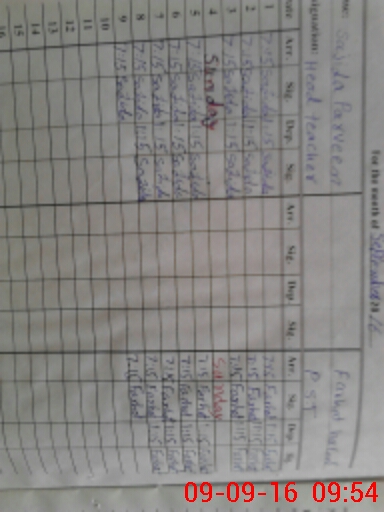 For the month of September 2016
Name: Sajida Parveen
Designation: Head teacher
Date Arr. Sig. Dep. Sig. Arr. Sig. Dep. Sig. Arr. Sig. Dep. Sig.
1 7:15 Sajida 1:15 Sajida 7:15 Farhat 1:15 Farhat
2 7:15 Sajida 1:15 Sajida 7:15 Farhat 1:15 Farhat
3 7:15 Sajida 1:15 Sajida 7:15 Farhat 1:15 Farhat
4 Sunday Sunday
5 7:15 Sajida 1:15 Sajida 7:15 Farhat 1:15 Farhat
6 7:15 Sajida 1:15 Sajida 7:15 Farhat 1:15 Farhat
7 7:15 Sajida 1:15 Sajida 7:15 Farhat 1:15 Farhat
8 7:15 Sajida 1:15 Sajida 7:15 Farhat 1:15 Farhat
9 7:15 Sajida 7:15 Farhat
10
11
12
13
14
15
16
09-09-16 09:54